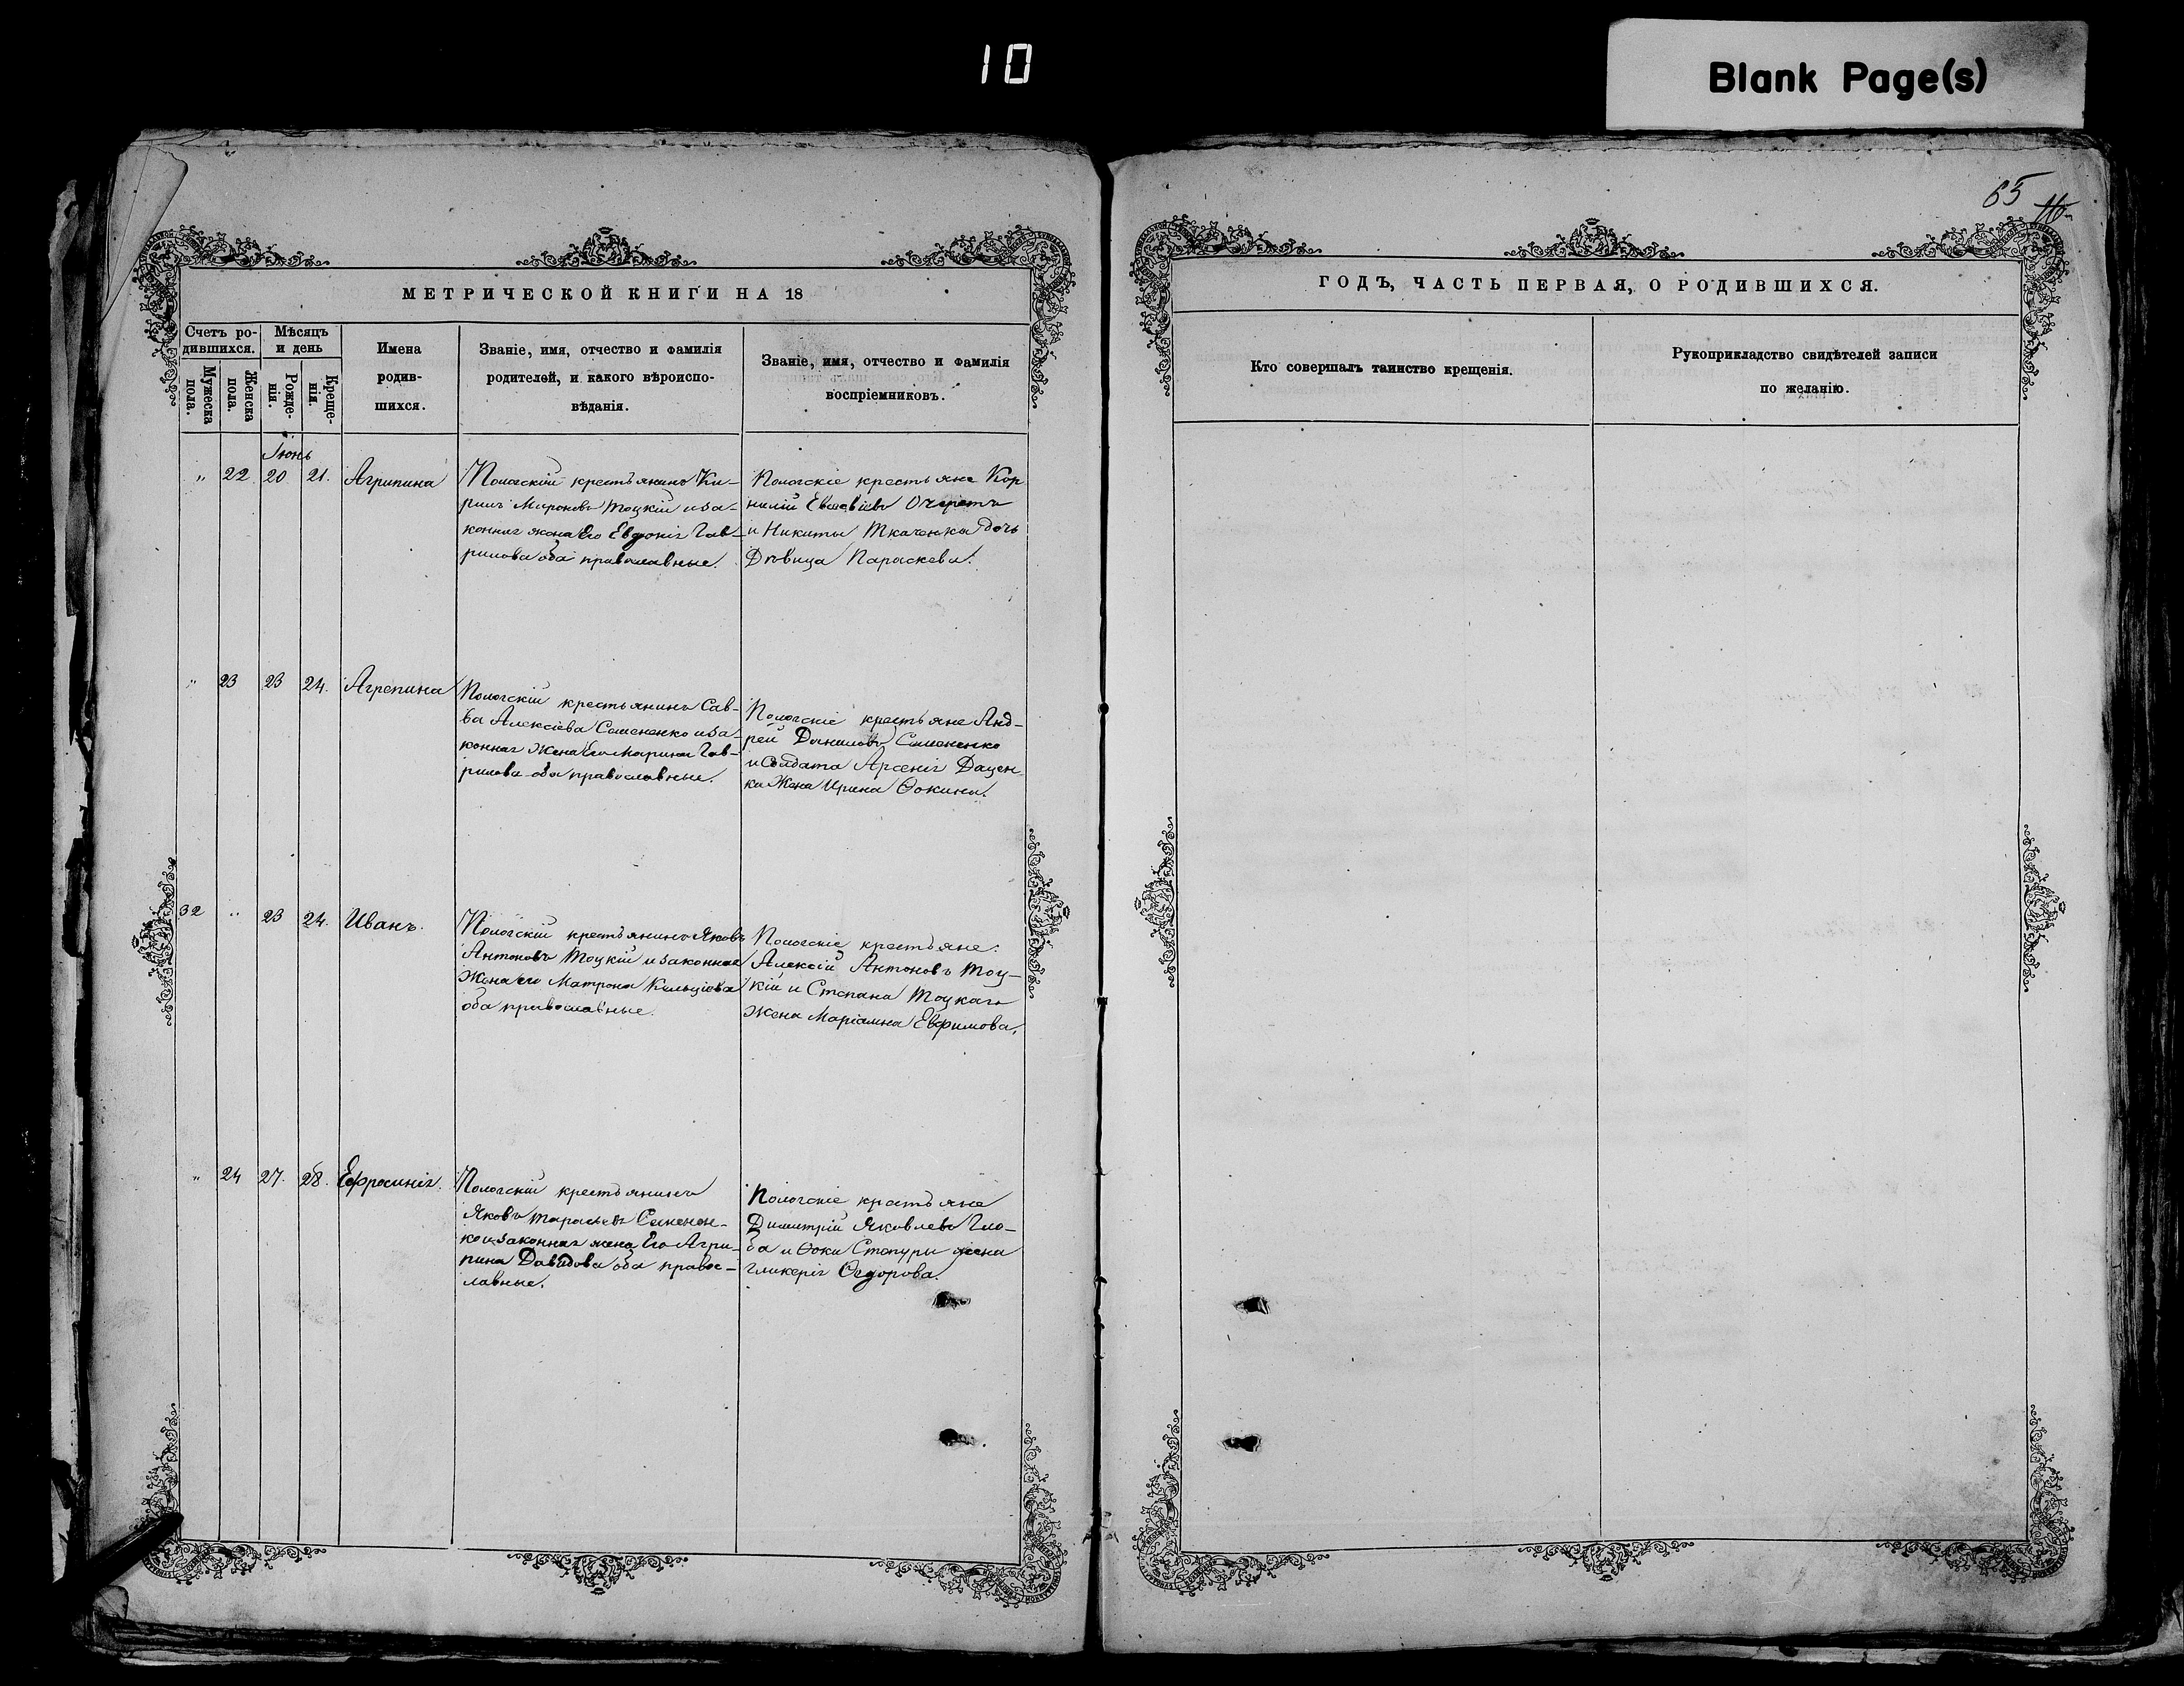 10
Blank Page(s)
65
16
МЕТРИЧЕСКОЙ КНИГИ НА 18
Счетъ ро-
дившихся.
Мѣсяцъ
и день
Мужеска
пола.
Женска
пола.
Рожде-
нія.
Креще-
нія.
Имена
родив-
шихся.
Званіе, имя, отчество и фамилія
родителей, и какого вѣроиспо-
вѣданія.
Званіе, имя, отчество и фамилія
воспріемниковъ.
Іюнь
„ 22 20 21. Агрипина
Пологскій крестьянинъ Ки-
рилъ Мироновъ Тоцкій и за-
конная жена Его Евдокія Гав-
рилова оба православные.
Пологскіе крестьяне Кор
нилій Евсевіевъ Очеретъ
и Никиты Ткаченка дочь
Дѣвица Параскева.
„ 23 23 24. Агрепина
Пологскій крестьянинъ Сав-
ва Алексіева Семененко и за-
конная Жена Его Марина Гав-
рилова оба православные.
Пологскіе крестьяне Анд-
рей Даниловъ Семененко
и Солдата Арсенія Дацен-
ка Жена Ирина Ѳокина.
32 „ 23 24. Иванъ.
Пологскій крестьянинъ Яковъ
Антоновъ Тоцкій и законная
Жена его Матрона
оба православные.
Пологскіе крестьяне.
Алексій Антоновъ Тоц-
кій и Степана Тоцкаго
Жена Маріамна Евфимова.
„ 24 27. 28. Ефросинія.
Пологскій крестьянинъ
Яковъ Тарасьевъ Семенен-
ко и законная жена Его Агри-
пина Давидова оба право-
славные.
Пологскіе крестьяне
Димитрій Яковлевъ Гло-
ба и Ѳоки Стопуры жена
Гликерія Ѳедорова.
ГОДЪ, ЧАСТЬ ПЕРВАЯ, О РОДИВШИХСЯ.
Кто совершалъ таинство крещенія.
Рукоприкладство свидѣтелей записи
по желанію.